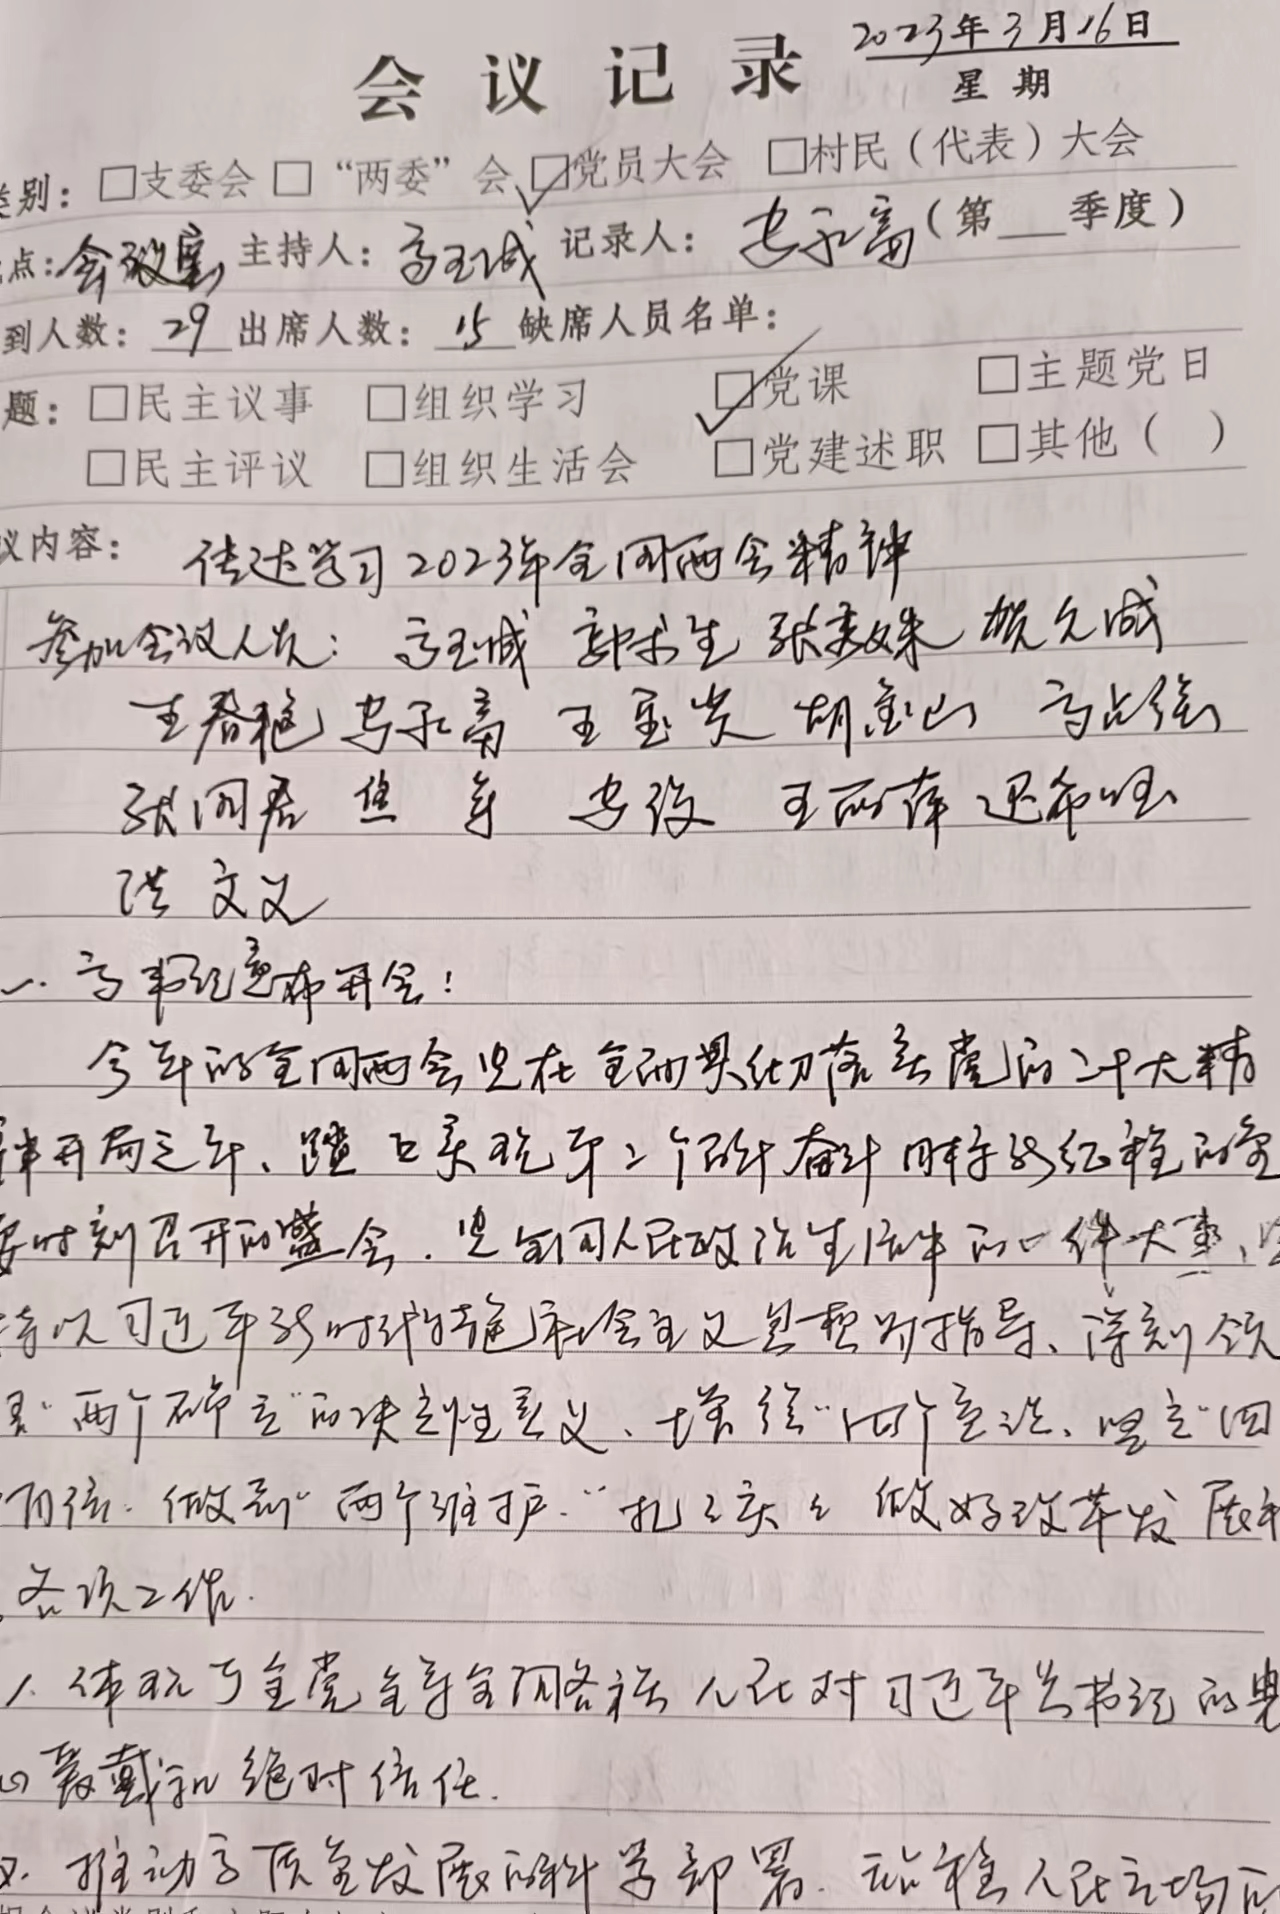 会议记录 2023年3月16日
星期
类别：□支委会 □“两委”会 □党员大会 □村民（代表）大会
点：会议室 主持人：高玉成 记录人：安永富（第___季度）
到人数：29 出席人数：15 缺席人员名单：
题：□民主议事 □组织学习 □党课 □主题党日
□民主评议 □组织生活会 □党建述职 □其他（ ）
议内容：传达学习2023年全国两会精神
参加会议人员：高玉成 张 贺久成
王春艳 安永富 王玉贵 胡金山 高占强
张国君 焦军 安俊 王丽萍
洪文义
一、高书记宣布开会：
今年的全国两会是在全面贯彻落实党的二十大精
神开局之年、踏上实现第二个百年奋斗目标新征程的重
要时刻召开的盛会．是全国人民政治生活中的一件大事、坚
持以习近平新时代特色社会主义思想为指导、深刻领
“两个确立”的决定性意义、增强“四个意识、坚定“四
个自信．做到“两个维护．”扎扎实实做好改革发展和
各项工作．
1．体现了全党全军全国各族人民对习近平总书记的衷
心爱戴和绝对信任．
2．推动高质量发展的科学部署．站稳人民立场的